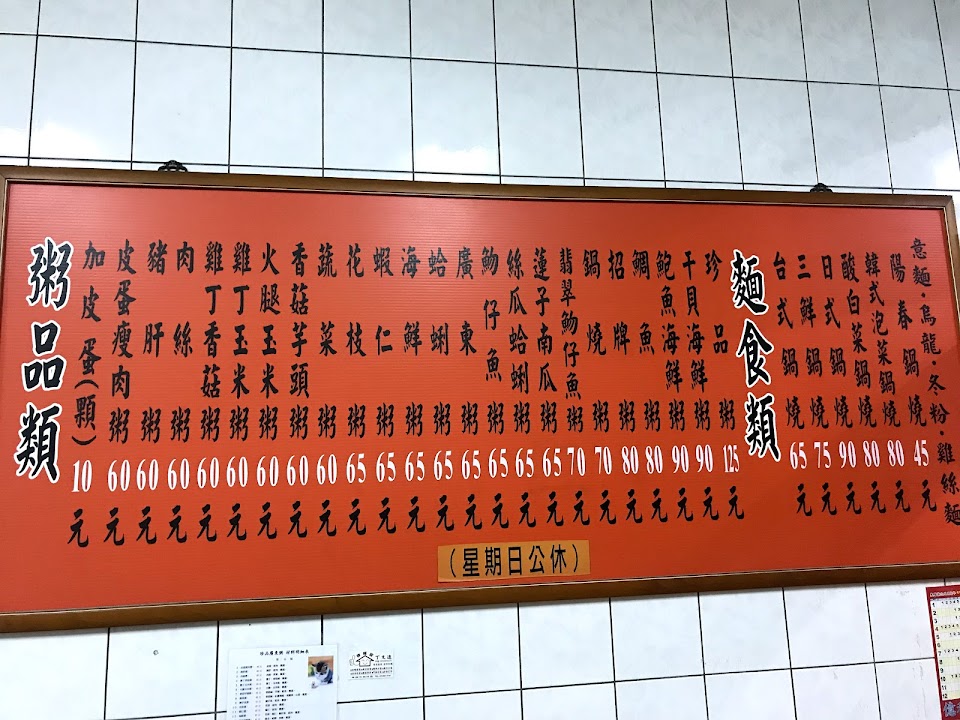 粥品類
加皮蛋(顆) 10元
皮蛋瘦肉粥 60元
豬肝粥 60元
肉絲粥 60元
雞丁香菇粥 60元
雞丁玉米粥 60元
火腿玉米粥 60元
香菇芋頭粥 60元
蔬菜粥 60元
花枝粥 65元
蝦仁粥 65元
海鮮粥 65元
蛤蜊粥 65元
廣東粥 65元
魩仔魚粥 65元
絲瓜蛤蜊粥 65元
蓮子南瓜粥 65元
翡翠魩仔魚粥 70元
鍋燒粥 70元
招牌粥 80元
鯛魚粥 80元
鮑魚海鮮粥 90元
干貝海鮮粥 90元
珍品粥 125元
麵食類
台式鍋燒 65元
三鮮鍋燒 75元
日式鍋燒 90元
酸白菜鍋燒 80元
韓式泡菜鍋燒 80元
陽春鍋燒 45元
意麵·烏龍·冬粉·雞絲麵
(星期日公休)